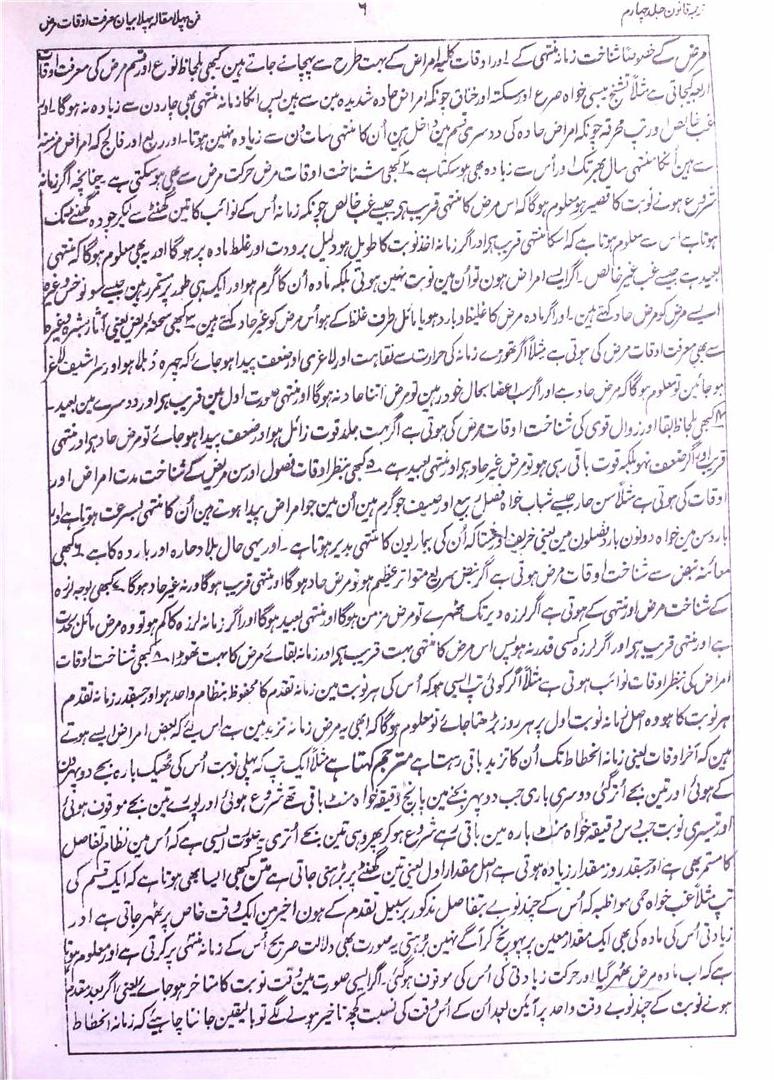 ترجمہ قانون جلد چہارم
۶
فن پہلا مقالہ پہلا بیان معرفت اوقات مرض
مرض کے خصوصاً شناخت زمانہ منتہی کے اور اوقات کلیہ امراض کے بہت طرح سے پہچانے جاتے ہین کبھی بلحاظ نوع اور قسم مرض کی معرفت اوقات
اربعہ کیجاتی ہے مثلاً تشنج یبسی خواہ صرع اور سکتہ اور خناق چونکہ امراض حادہ شدیدہ مین سے ہین پس انکا زمانہ منتہی بھی چار دن سے زیادہ نہ ہوگا۔ اور
غب خالص اور تپ محرقہ چونکہ امراض حادہ کی دوسری قسم مین داخل ہین اُن کا منتہی سات دن سے زیادہ نہین ہوتا۔ اور ربع اور فالج کہ امراض مزمنہ
سے ہین انکا منتہی سال بھر تک اور اُس سے زیادہ بھی ہو سکتا ہے ۲ کبھی شناخت اوقات مرض حرکت مرض سے بھی ہو سکتی ہے۔ چنانچہ اگر زمانہ
شروع ہونے نوبت کا قصیر ہو معلوم ہوگا کہ اس مرض کا منتہی قریب ہی جیسے غب خالص چونکہ زمانہ اُس کے نوائب کا تین گھنٹے سے لیکر چودہ گھنٹے تک
ہوتا ہے اس سے معلوم ہوتا ہے کہ اُسکا منتہی قریب ہی اور اگر زمانہ اخذ نوبت کا طویل ہو دلیل برودت اور غلظ مادہ پر ہوگا اور یہ بھی معلوم ہوگا کہ منتہی
بعید ہے جیسے غب غیر خالص۔ اگر ایسے امراض ہون تو اُن مین نوبت نہین ہوتی بلکہ مادہ اُن کا گرم ہو اور ایک ہی طور پر مستمر رہین جیسے سونوخس وغیرہ
ایسے مرض کو مرض حاد کہتے ہین۔ اور اگر مادہ مرض کا غلیظ و بارد ہو یا مائل طرف غلظ کے ہو اُس مرض کو غیر حاد کہتے ہین ۳ کبھی سحنۂ مریض یعنی آثار بشرہ وغیرہ
سے بھی معرفت اوقات مرض کی ہوتی ہے مثلاً اگر تھوڑے زمانہ کی حرارت سے نقاہت اور لاغری اور ضعف پیدا ہو جائے کہ چہرہ دُبلا ہو اور سراشیف لاغر
ہو جائین تو معلوم ہوگا کہ مرض حاد ہے اور اگر سب اعضا بحال خود رہین تو مرض اتنا حاد نہ ہوگا اور منتہی صورت اول مین قریب ہی اور دوسرے مین بعید۔
۴ کبھی بلحاظ بقا اور زوال قوی کی شناخت اوقات مرض کی ہوتی ہے اگر بہت جلد قوت زائل ہو اور ضعف پیدا ہو جائے تو مرض حاد ہی اور منتہی
قریب اور اگر ضعف نہو بلکہ قوت باقی رہی ہو تو مرض غیر حاد ہی اور منتہی بعید ہے ۵ کبھی بنظر اوقات فصول اور سن مریض کے شناخت مدت امراض اور
اوقات کی ہوتی ہے مثلاً سن حار جیسے شباب خواہ فصل ربیع اور صیف جو گرم ہین اُن مین جو امراض پیدا ہوتے ہین اُن کا منتہی بسرعت ہوتا ہے اور
بارد سن مین خواہ دونون بارد فصلون مین یعنی خریف اور شتا کہ اُن کی بیماریون کا منتہی بدیر ہوتا ہے۔ اور یہی حال بلاد حارہ اور باردہ کا ہے ۶ کبھی
معائنہ نبض سے شناخت اوقات مرض ہوتی ہے اگر نبض سریع متواتر عظیم ہو تو مرض حاد ہوگا اور منتہی قریب ہوگا ورنہ غیر حاد ہوگا ۷ کبھی بوجہ لرزہ
کے شناخت مرض اور منتہی کے ہوتی ہے اگر لرزہ دیر تک ٹھہرے تو مرض مزمن ہوگا اور منتہی بعید ہوگا اور اگر زمانہ لرزہ کا کم ہو تو وہ مرض مائل بحدت
ہے اور منتہی قریب ہی اور اگر لرزہ کسی قدر نہ ہو پس اس مرض کا منتہی بہت قریب ہی اور زمانہ بقائے مرض کا بہت تھوڑا ۸ کبھی شناخت اوقات
امراض کی بنظر اوقات نوائب ہوتی ہے مثلاً اگر کوئی تپ ایسی ہو کہ اُس کی ہر نوبت مین زمانہ تقدم کا محفوظ بنظام واحد ہو اور جسقدر زمانہ تقدم
ہر نوبت کا ہو وہ اصل زمانہ نوبت اول پر ہر روز بڑھتا جائے تو معلوم ہوگا کہ ابھی یہ مرض زمانہ تزید مین ہے اس لیے کہ بعض امراض ایسے ہوتے
ہین کہ آخر اوقات یعنی زمانہ انحطاط تک اُن کا تزید باقی رہتا ہے مترجم کہتا ہے مثلاً ایک تپ کہ پہلی نوبت اُس کی ٹھیک بارہ بجے دوپہر دن
کے ہوئی اور تین بجے اُتر گئی دوسری باری جب دوپہر بجنے مین پانچ دقیقہ خواہ منٹ باقی تھے شروع ہوئی اور پورے تین بجے موقوف ہوئی
اور تیسری نوبت جب دس دقیقہ خواہ منٹ بارہ مین باقی رہے شروع ہو کر پھر وہی تین بجے اُتری یہ صورت ایسی ہے کہ اُس مین نظام تفاضل
کا مستمر بھی ہے اور جسقدر روز مقدار زیادہ ہوتی ہے اصل مقدار اول یعنی تین گھنٹے پر بڑھتی جاتی ہے متن کبھی ایسا بھی ہوتا ہے کہ ایک قسم کی
تپ مثلاً غب خواہ حمی مواظبہ کہ اُس کے چند نوبے بتفاضل مذکور بر سبیل تقدم کے ہون اخیر مین ایک وقت خاص پر ٹھہر جاتی ہے اور
زیادتی اُس کی مادہ کی بھی ایک مقدار معین پر پہونچ کر آگے نہین بڑھتی یہ صورت بھی دلالت صریح اُس کے زمانہ منتہی پر کرتی ہے اور معلوم ہوتا
ہے کہ اب مادہ مرض ٹھہر گیا اور حرکت زیادتی کی اُس کی موقوف ہو گئی۔ اگر ایسی صورت مین وقت نوبت کا متاخر ہو جائے یعنی اگر بعد مقدم
ہونے نوبت کے چند نوبے وقت واحد پر آئین بعد اُن کے اُس وقت کی نسبت کچھ تاخیر ہونے لگے تو بالیقین جاننا چاہیے کہ زمانہ انحطاط